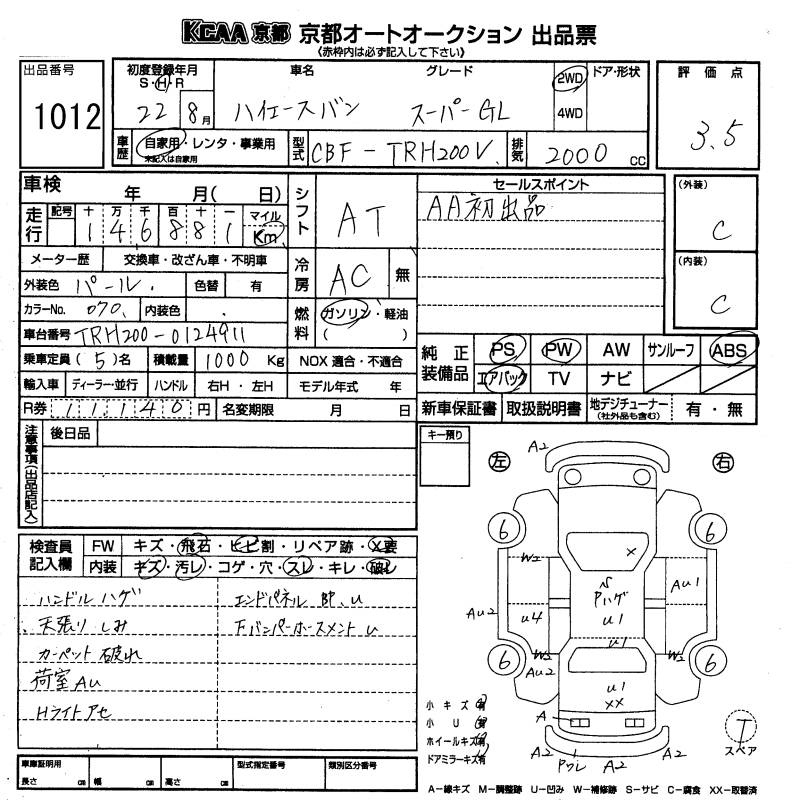 KCAA 京都 京都オートオークション 出品票
《赤枠内は必ず記入して下さい》
出品番号
1012
初度登録年月
S・H・R
22 8月
車名
ハイエースバン
グレード
スーパーGL
2WD
4WD
ドア・形状
評価点
3.5
車歴
自家用・レンタ・事業用
未記入は自家用
型式
CBF-TRH200V
排気
2000 cc
車検 年 月( 日)
走行
記号 十 万 千 百 十 一
1 4 6 8 8 1
マイル
Km
メーター歴 交換車・改ざん車・不明車
外装色 パール
色替 有
カラーNo. 070
内装色
車台番号 TRH200-0124911
乗車定員 (5)名
積載量 1000 Kg
NOX 適合・不適合
輸入車 ディーラー・並行 ハンドル 右H・左H モデル年式 年
R券 11,140 円
名変期限 月 日
シフト
AT
冷房
AC 無
燃料
ガソリン・軽油
( )
セールスポイント
AA初出品
(外装)
C
(内装)
C
純正装備品
PS PW AW サンルーフ ABS
エアバック TV ナビ
新車保証書 取扱説明書 地デジチューナー
(社外品も含む)
有・無
注意事項(出品店記入)
後日品
キー預り
左
右
検査員記入欄
FW キズ・飛石・ヒビ割・リペア跡・X要
内装 キズ・汚レ・コゲ・穴・スレ・キレ・破レ
ハンドルハゲ
天張りしみ
カーペット破れ
荷室AU
Hライトアセ
エンドパネル BP、U
FバンパーホースメントU
A2
6
6
W2
×
AU1
Pハゲ
U1
AU2
U4
U1
W2
W2
6
6
AU2
U1
XX
A
A2
A2
A2
小キズ(有)
小U(有)
ホイールキズ(有)
ドアミラーキズ(有)
T
スペア
車庫証明用
長さ cm 幅 cm 高さ cm
型式指定番号
類別区分番号
A-線キズ M-調整跡 U-凹み W-補修跡 S-サビ C-腐食 XX-取替済